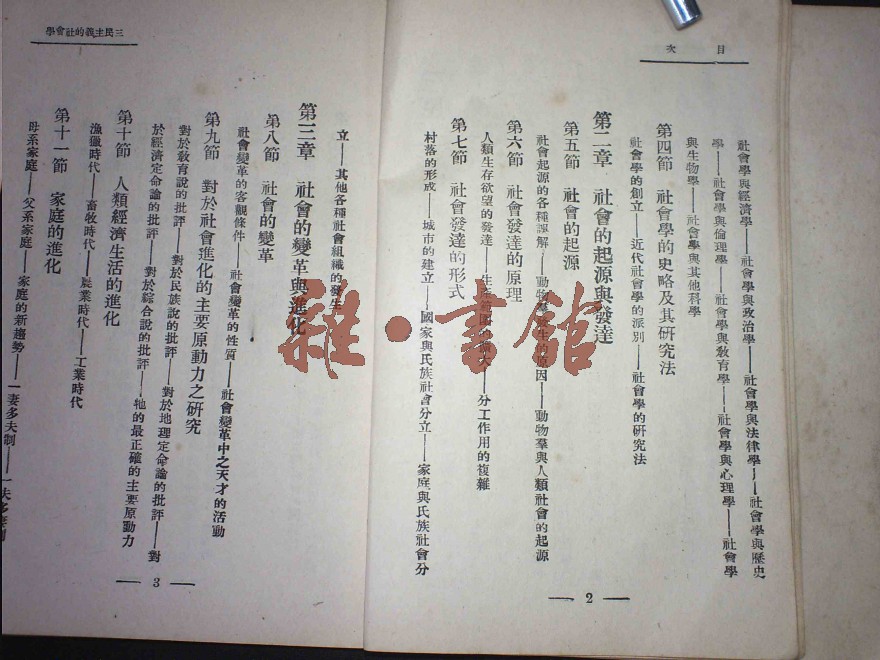 目次
社會學與經濟學——社會學與政治學——社會學與法律學——社會學與歷史
學——社會學與倫理學——社會學與敎育學——社會學與心理學——社會學
與生物學——社會學與其他科學
第四節　社會學的史略及其研究法
社會學的創立——近代社會學的派別——社會學的研究法
第二章　社會的起源與發達
第五節　社會的起源
社會起源的各種誤解——動物羣發生的原因——動物羣與人類社會的起源
第六節　社會發達的原理
人類生存欲望的發達——生產範圍的擴大——分工作用的複雜
第七節　社會發達的形式
村落的形成——城市的建立——國家與氏族社會分立——家庭與氏族社會分
2
三民主義的社會學
立——其他各種社會組織的發生
第三章　社會的變革與進化
第八節　社會的變革
社會變革的客觀條件——社會變革的性質——社會變革中之天才的活動
第九節　對於社會進化的主要原動力之研究
對於敎育說的批評——對於民族說的批評——對於地理定命論的批評——對
於經濟定命論的批評——對於綜合說的批評——牠的最正確的主要原動力
第十節　人類經濟生活的進化
漁獵時代——畜牧時代——農業時代——工業時代
第十一節　家庭的進化
母系家庭——父系家庭——家庭的新趨勢——一妻多夫制——一夫多妻制
3
雜·書館